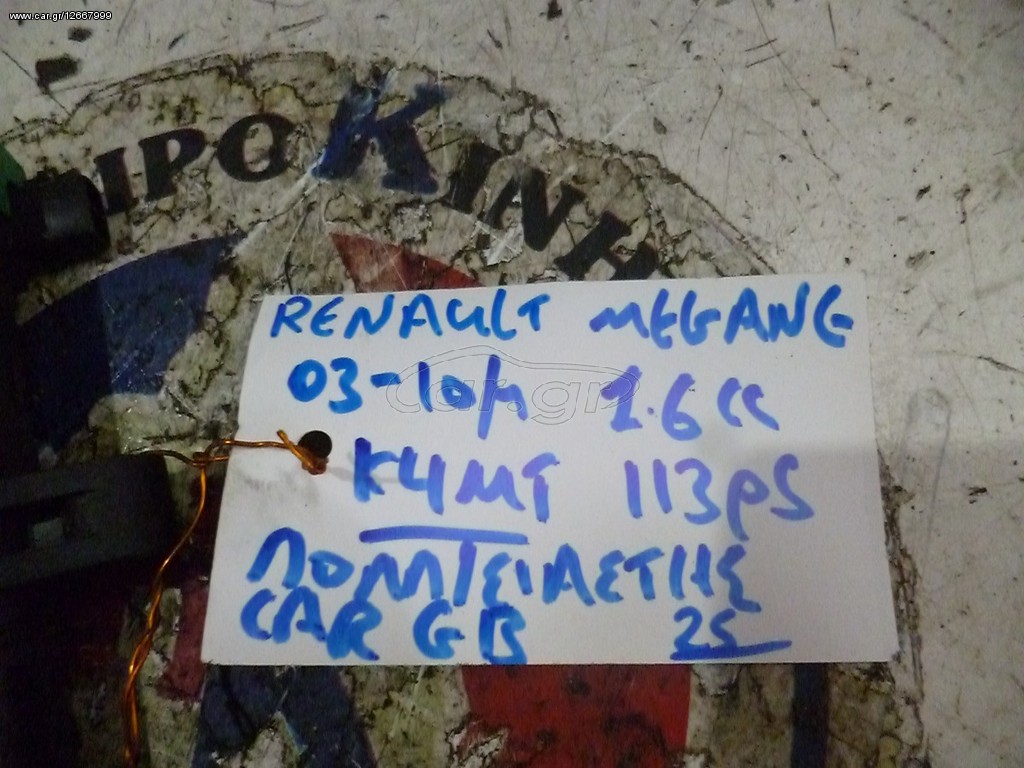 www.car.gr/12667999
ΙΡΟΚΙΝΗ
RENAULT MEGANE
03-10μ 1.6cc
car.gr
K4MT 113ps
ΠΟΛΛ/ΣΙΑΣΤΗΣ
CAR GB 25